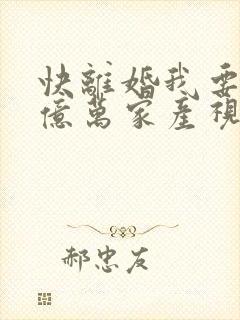 快離婚我要
億萬家產視
郝忠友